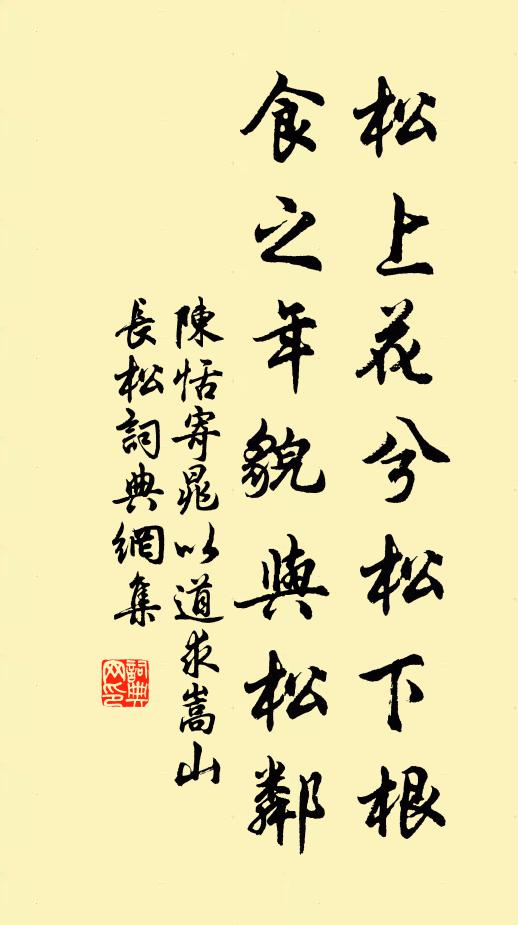 松上花兮松下根
食之年貌與松鄰
陳恬寄晁以道求嵩山
長松詞典網集
詞典網印